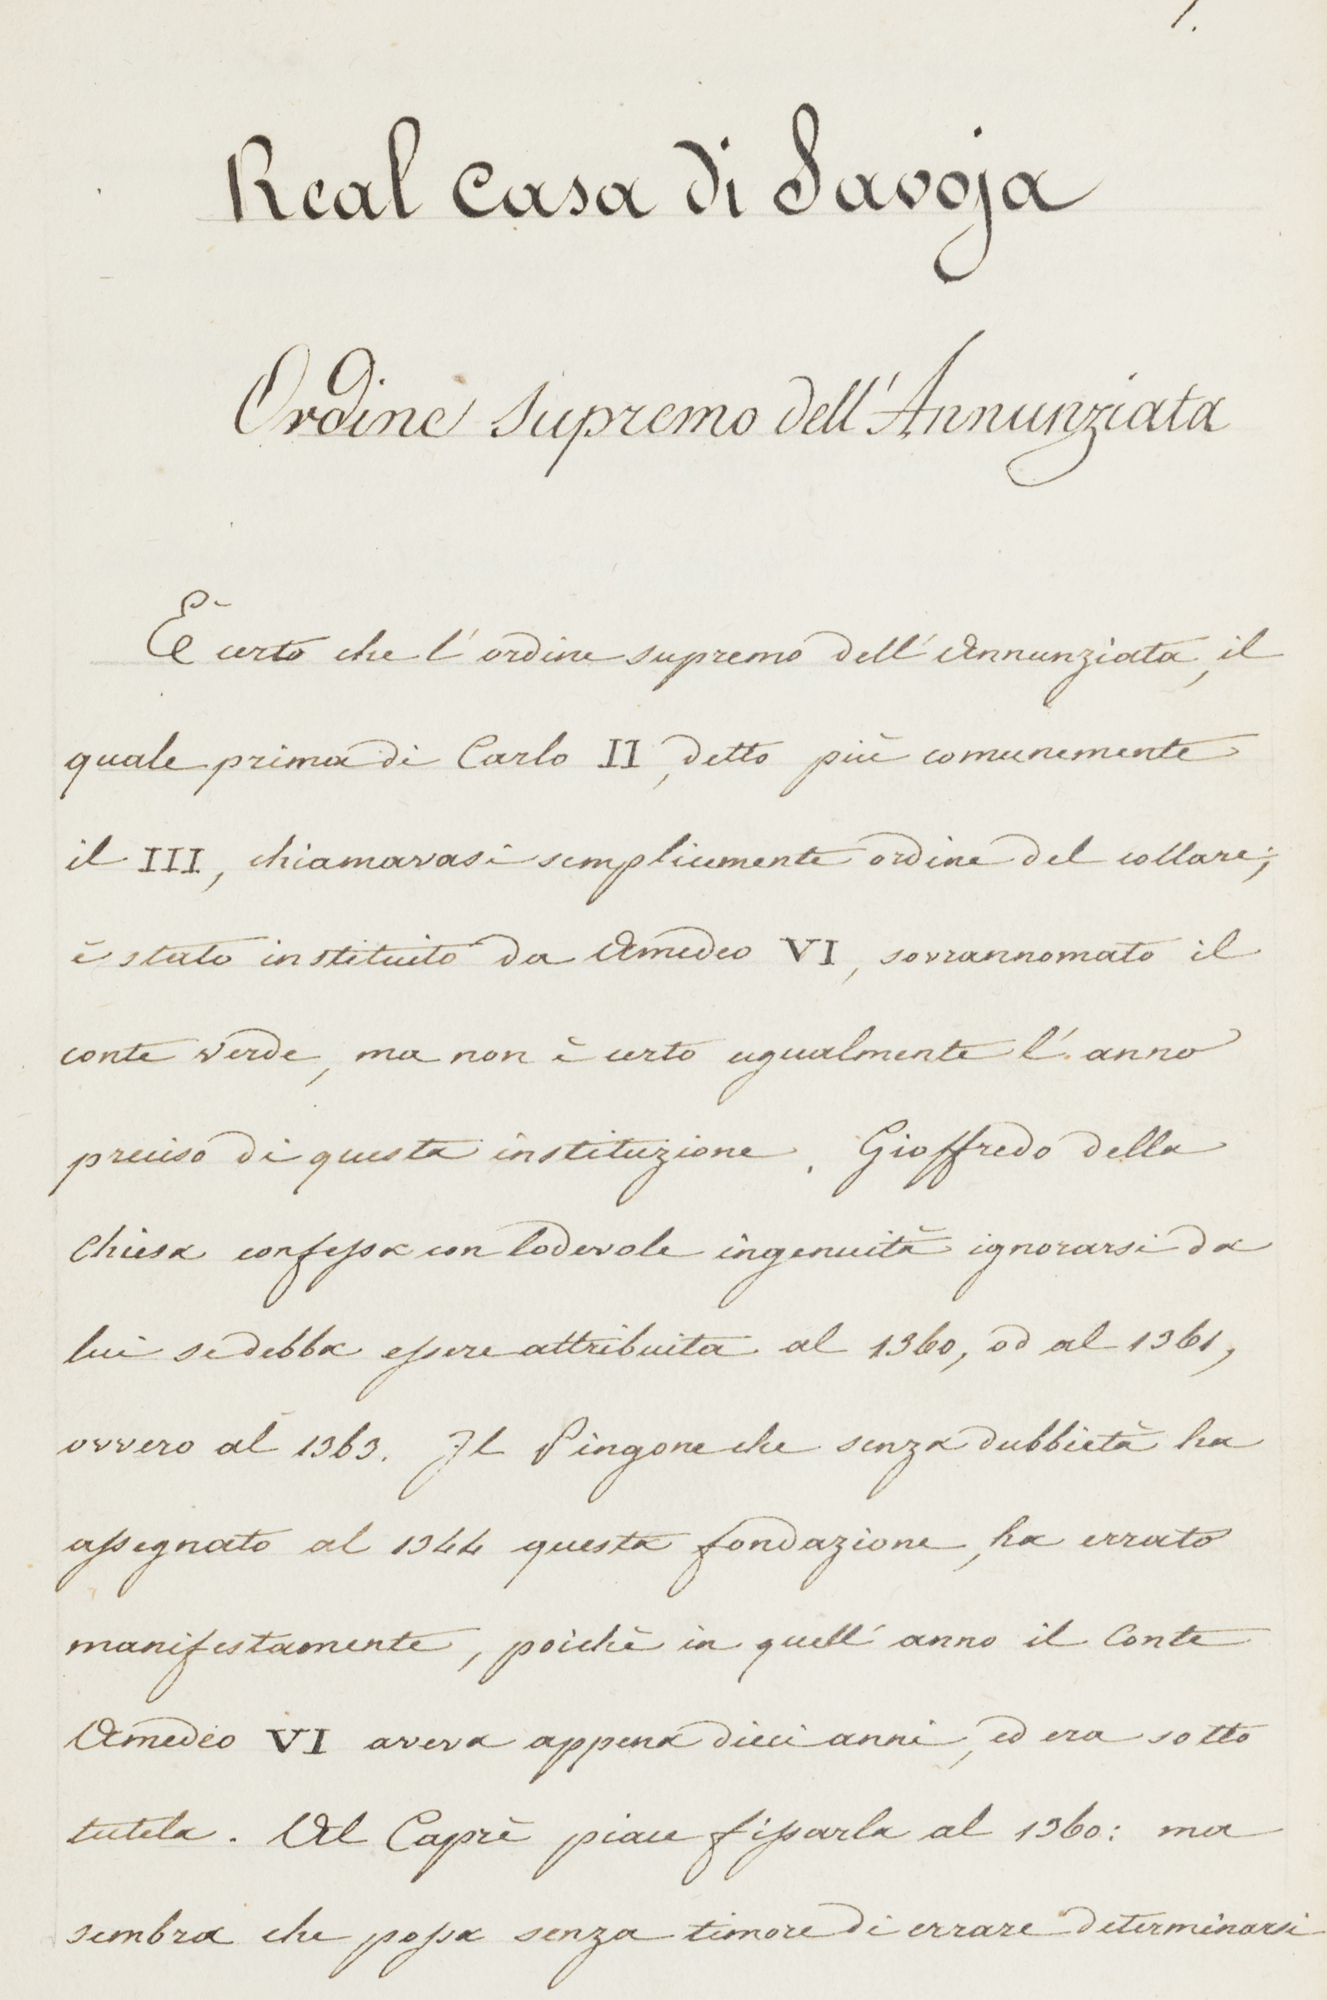 1.
Real Casa di Savoja
Ordine supremo dell'Annunziata
È certo che l'ordine supremo dell'Annunziata, il
quale prima di Carlo II, detto più comunemente
il III, chiamavasi semplicemente ordine del collare;
è stato instituito da Amedeo VI, sovrannomato il
conte verde, ma non è certo ugualmente l'anno
preciso di questa instituzione. Gioffredo della
Chiesa confessa con lodevole ingenuità ignorarsi da
lui se debba essere attribuita al 1360, od al 1361,
ovvero al 1363. Il Pingone che senza dubbietà ha
assegnato al 1344 questa fondazione, ha errato
manifestamente, poichè in quell'anno il Conte
Amedeo VI aveva appena dieci anni, ed era sotto
tutela. Al Caprè piace fissarla al 1360: ma
sembra che possa senza timore di errare determinarsi